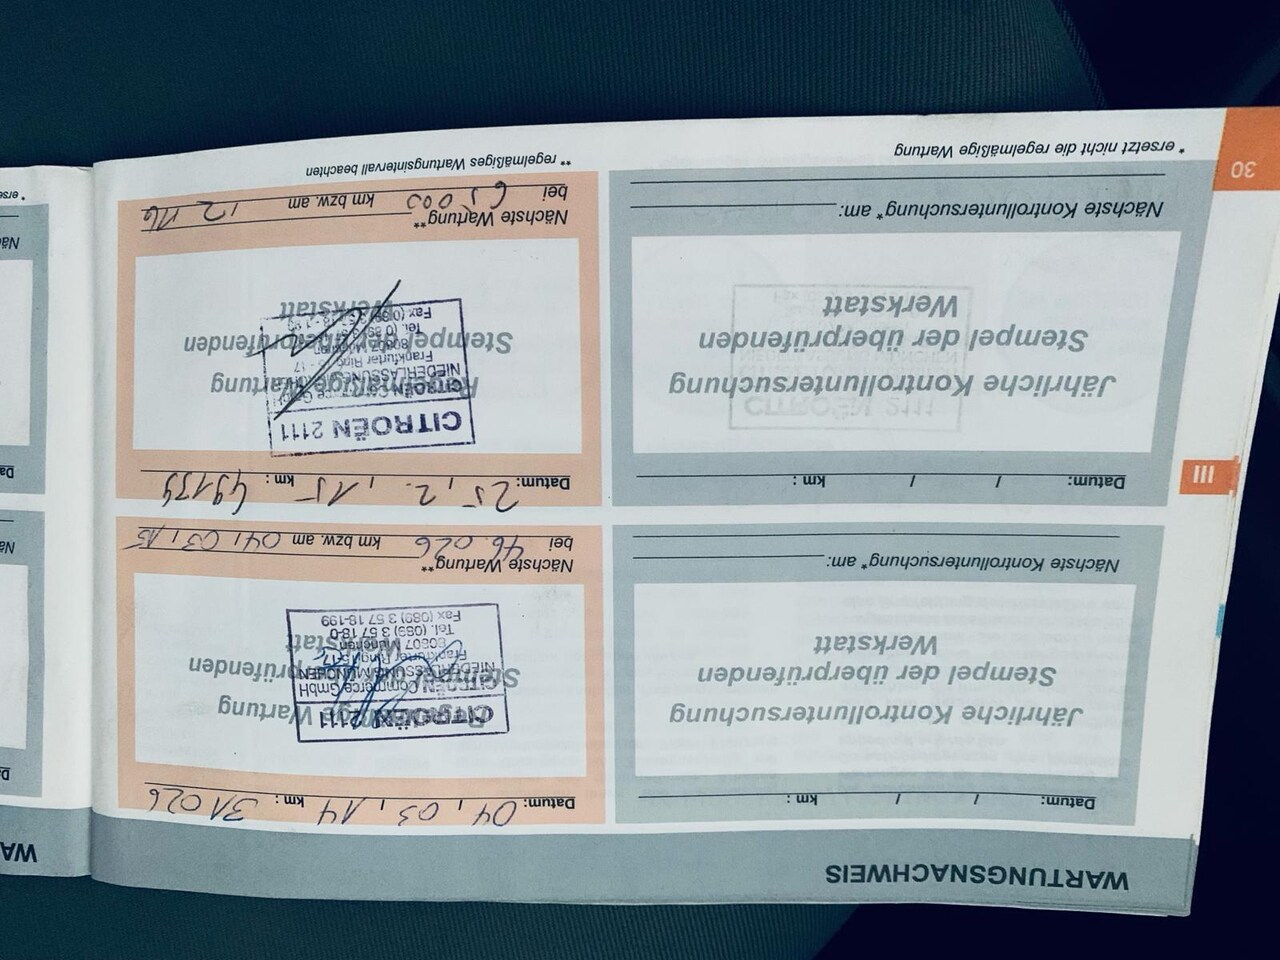 WARTUNGSNACHWEIS
Datum: / / km :
Jährliche Kontrolluntersuchung
Stempel der überprüfenden
Werkstatt
Nächste Kontrolluntersuchung* am:
Datum: / / km :
Jährliche Kontrolluntersuchung
Stempel der überprüfenden
Werkstatt
Nächste Kontrolluntersuchung* am:
*ersetzt nicht die regelmäßige Wartung
30
III
Datum: 04 / 03 / 14 km : 31026
Regelmäßige Wartung
Stempel der überprüfenden
Werkstatt
CITROËN 2111
CITROËN Commerce GmbH
NIEDERLASSUNG MÜNCHEN
Frankfurter Ring 15-17
80807 München
Tel. (089) 3 57 18-0
Fax (089) 3 57 18-199
Nächste Wartung**
bei 46.026 km bzw. am 04 / 03 / 15
Datum: 25 / 2 / 15 km : 49139
Regelmäßige Wartung
Stempel der überprüfenden
Werkstatt
CITROËN 2111
CITROËN Commerce GmbH
NIEDERLASSUNG
Frankfurter Ring - 17
80807 München
Tel. (0
Fax (089)
Nächste Wartung**
bei 65000 km bzw. am / 2 /16
** regelmäßiges Wartungsintervall beachten
WA
Da
Nä
Da
Nä
*erse